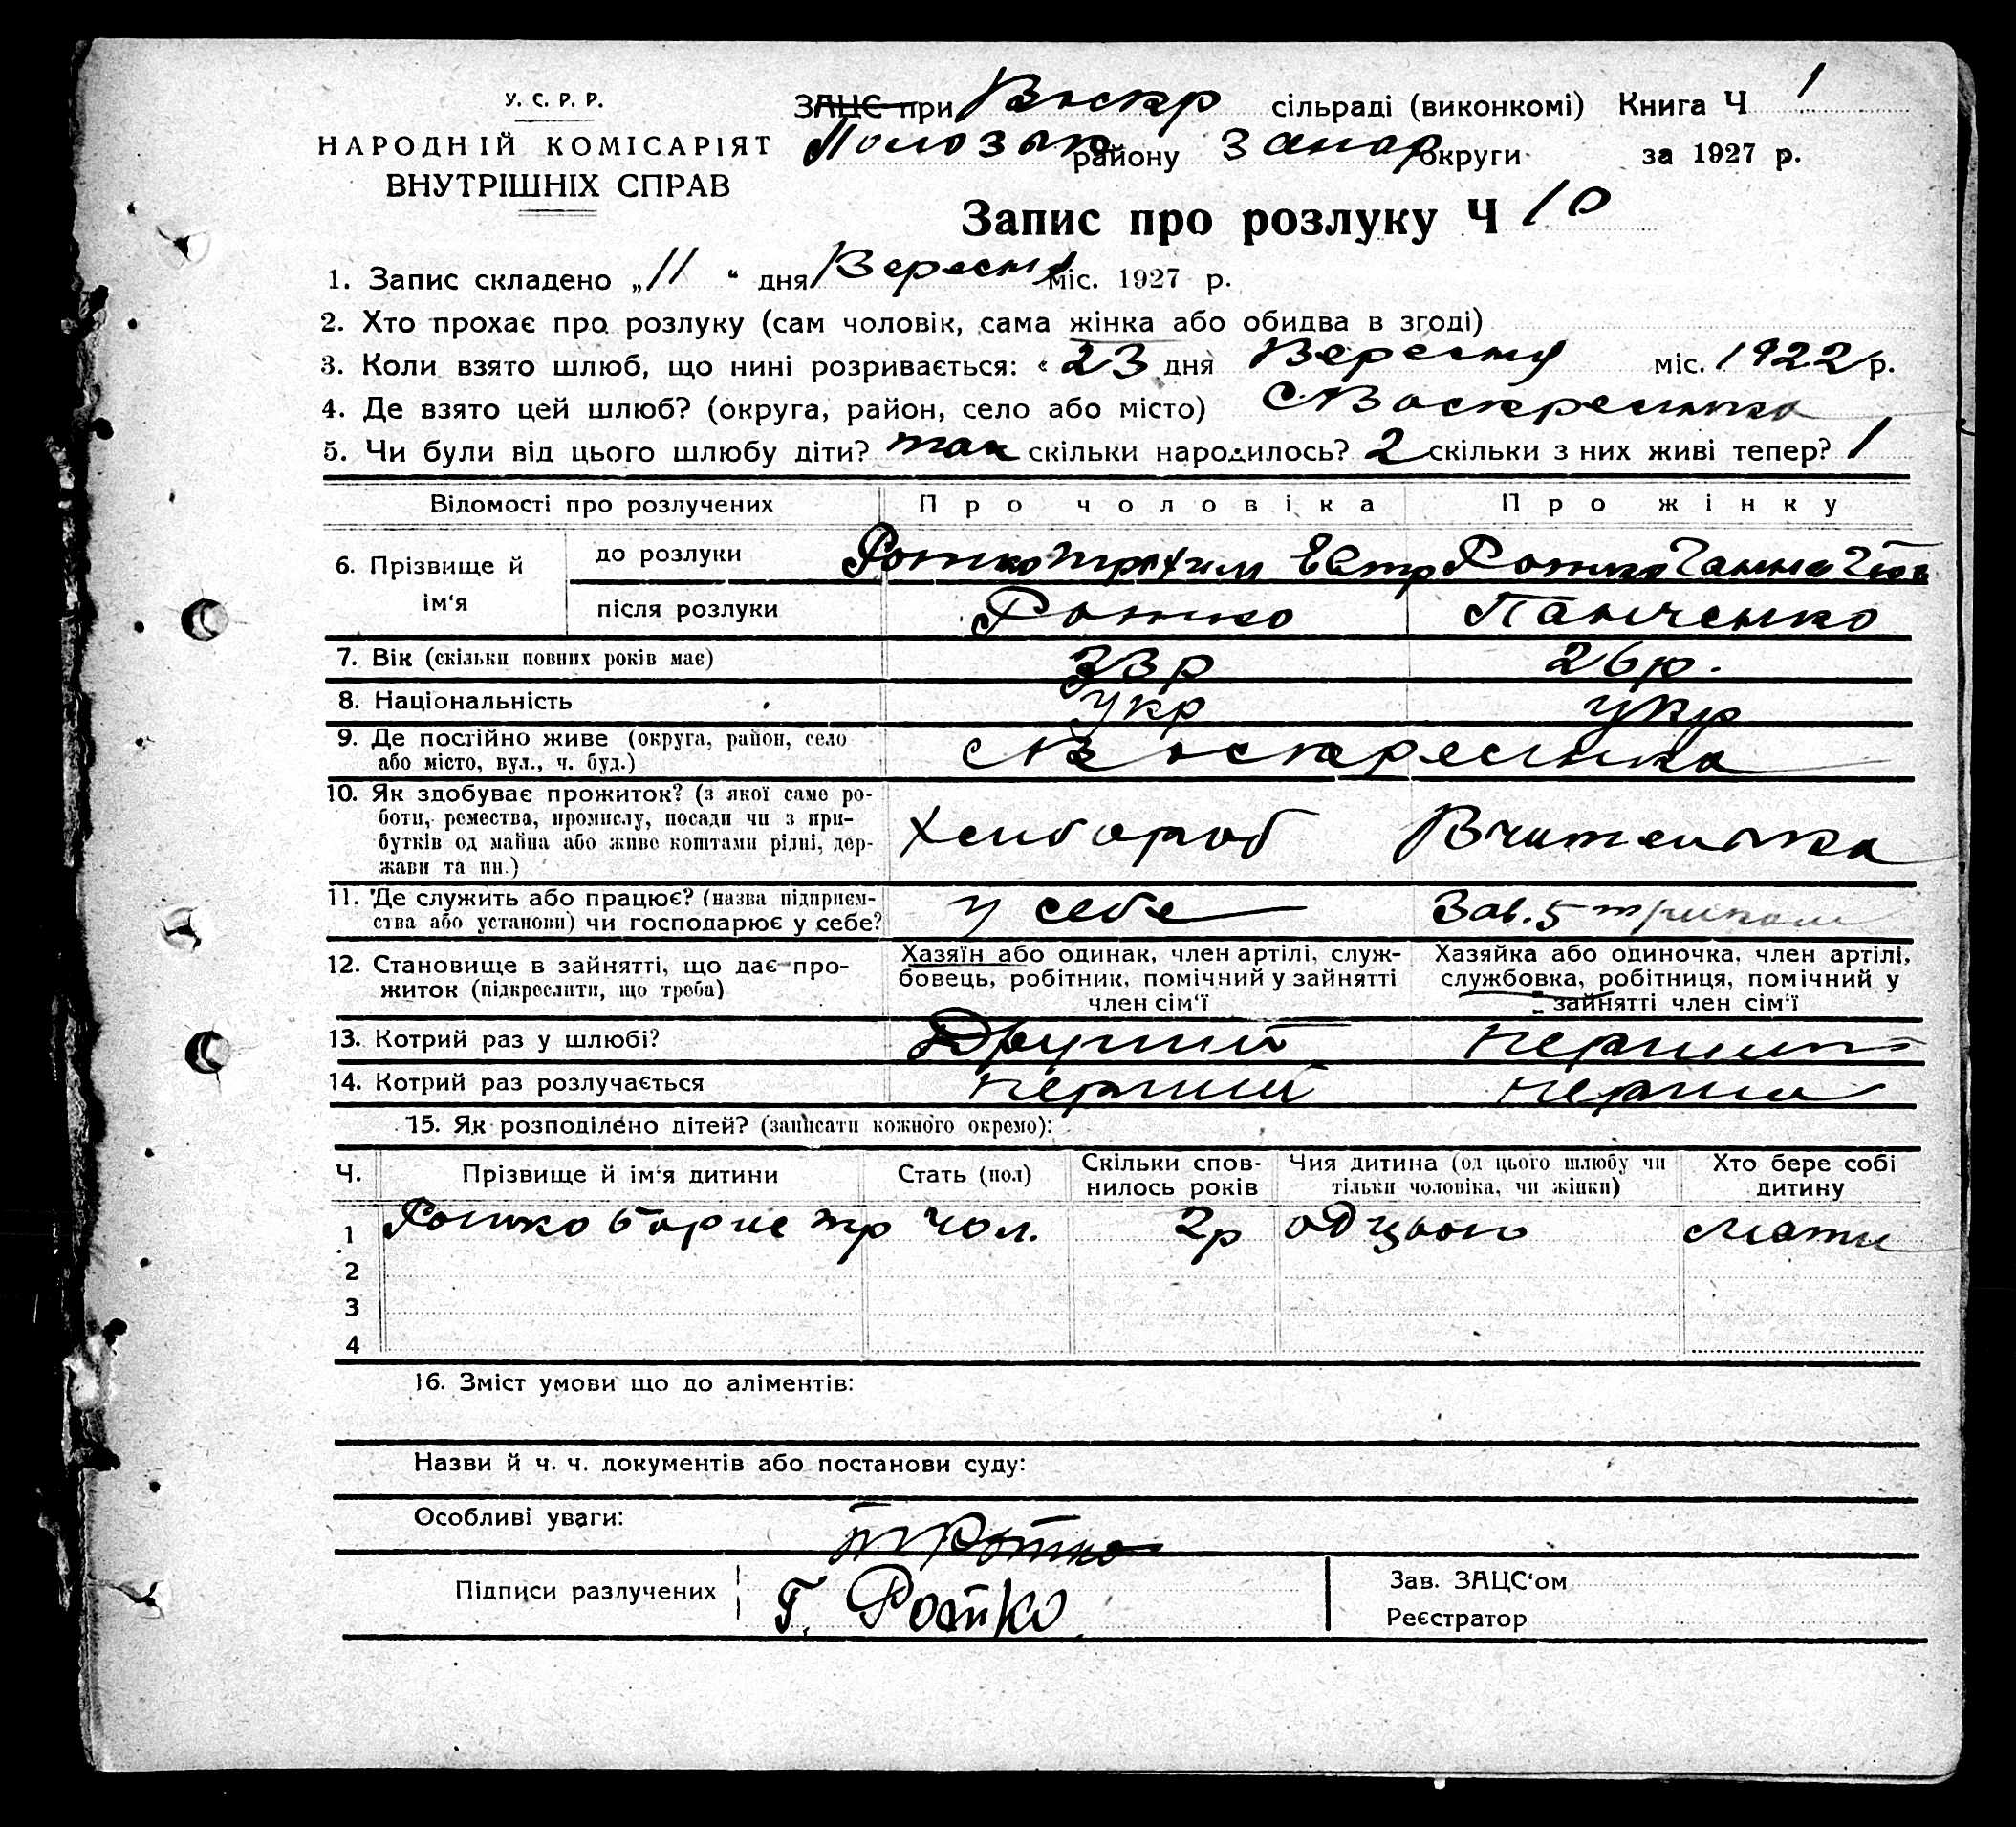 У. С. Р. Р.
НАРОДНІЙ КОМІСАРІЯТ
ВНУТРІШНІХ СПРАВ
ЗАЦС при Воскр сільраді (виконкомі) Книга Ч 1
Полозьк району Запор округи за 1927 р.
Запис про розлуку Ч 10
1. Запис складено „11 “ дня Вересня міс. 1927 р.
2. Хто прохає про розлуку (сам чоловік, сама жінка або обидва в згоді)
3. Коли взято шлюб, що нині розривається: « 23 дня Вересня міс. 1922 р.
4. Де взято цей шлюб? (округа, район, село або місто) с Воскресенка
5. Чи були від цього шлюбу діти? так скільки народилось? 2 скільки з них живі тепер? 1
Відомості про розлучених Про чоловіка Про жінку
6. Прізвище й ім‘я до розлуки Ротко Трохим Евтр Ротко Ганна
після розлуки Ротко Панченко
7. Вік (скільки повних років має) 33 р 26 р.
8. Національність Укр укр
9. Де постійно живе (округа, район, село
або місто, вул., ч. буд.) с Воскресенка
10. Як здобуває прожиток? (з якої саме ро-
боти, ремества, промислу, посади чи з при-
бутків од майна або живе коштами рідні, дер-
жави та ин.) Хлибороб Вчителька
11. Де служить або працює? (назва підприєм-
ства або установи) чи господарює у себе? у себе Зав. 5
12. Становище в зайнятті, що дає про-
житок (підкреслити, що треба)
Хазяїн або одинак, член артілі, служ-
бовець, робітник, помічний у зайнятті
член сім‘ї
Хазяйка або одиночка, член артілі,
службовка, робітниця, помічний у
зайнятті член сім‘ї
13. Котрий раз у шлюбі? Другий
14. Котрий раз розлучається перший
15. Як розподілено дітей? (записати кожного окремо):
Ч. Прізвище й ім‘я дитини Стать (пол) Скільки спов-
нилось років Чия дитина (од цього шлюбу чи
тільки чоловіка, чи жінки) Хто бере собі
дитину
1 Ротко Борис Тр чол. 2р од цього мати
2
3
4
16. Зміст умови що до аліментів:
Назви й ч. ч. документів або постанови суду:
Особливі уваги:
Т Ротко
Підписи разлучених Г. Ротко
Зав. ЗАЦС‘ом
Реєстратор